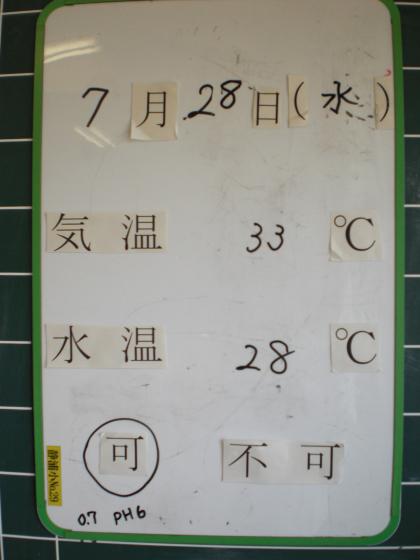 7月28日(水)
気温 33 ℃
水温 28 ℃
可 不可
0.7 PH6